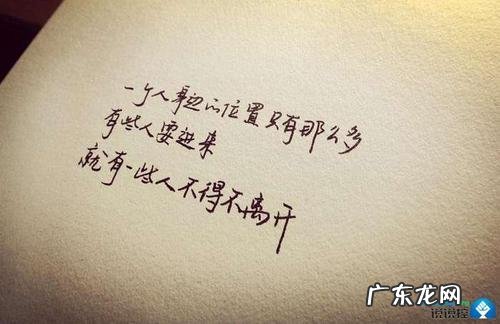 一个人身边的位置只有那么多
有些人要进来
就有一些人不得不离开
说说控
广东龙网